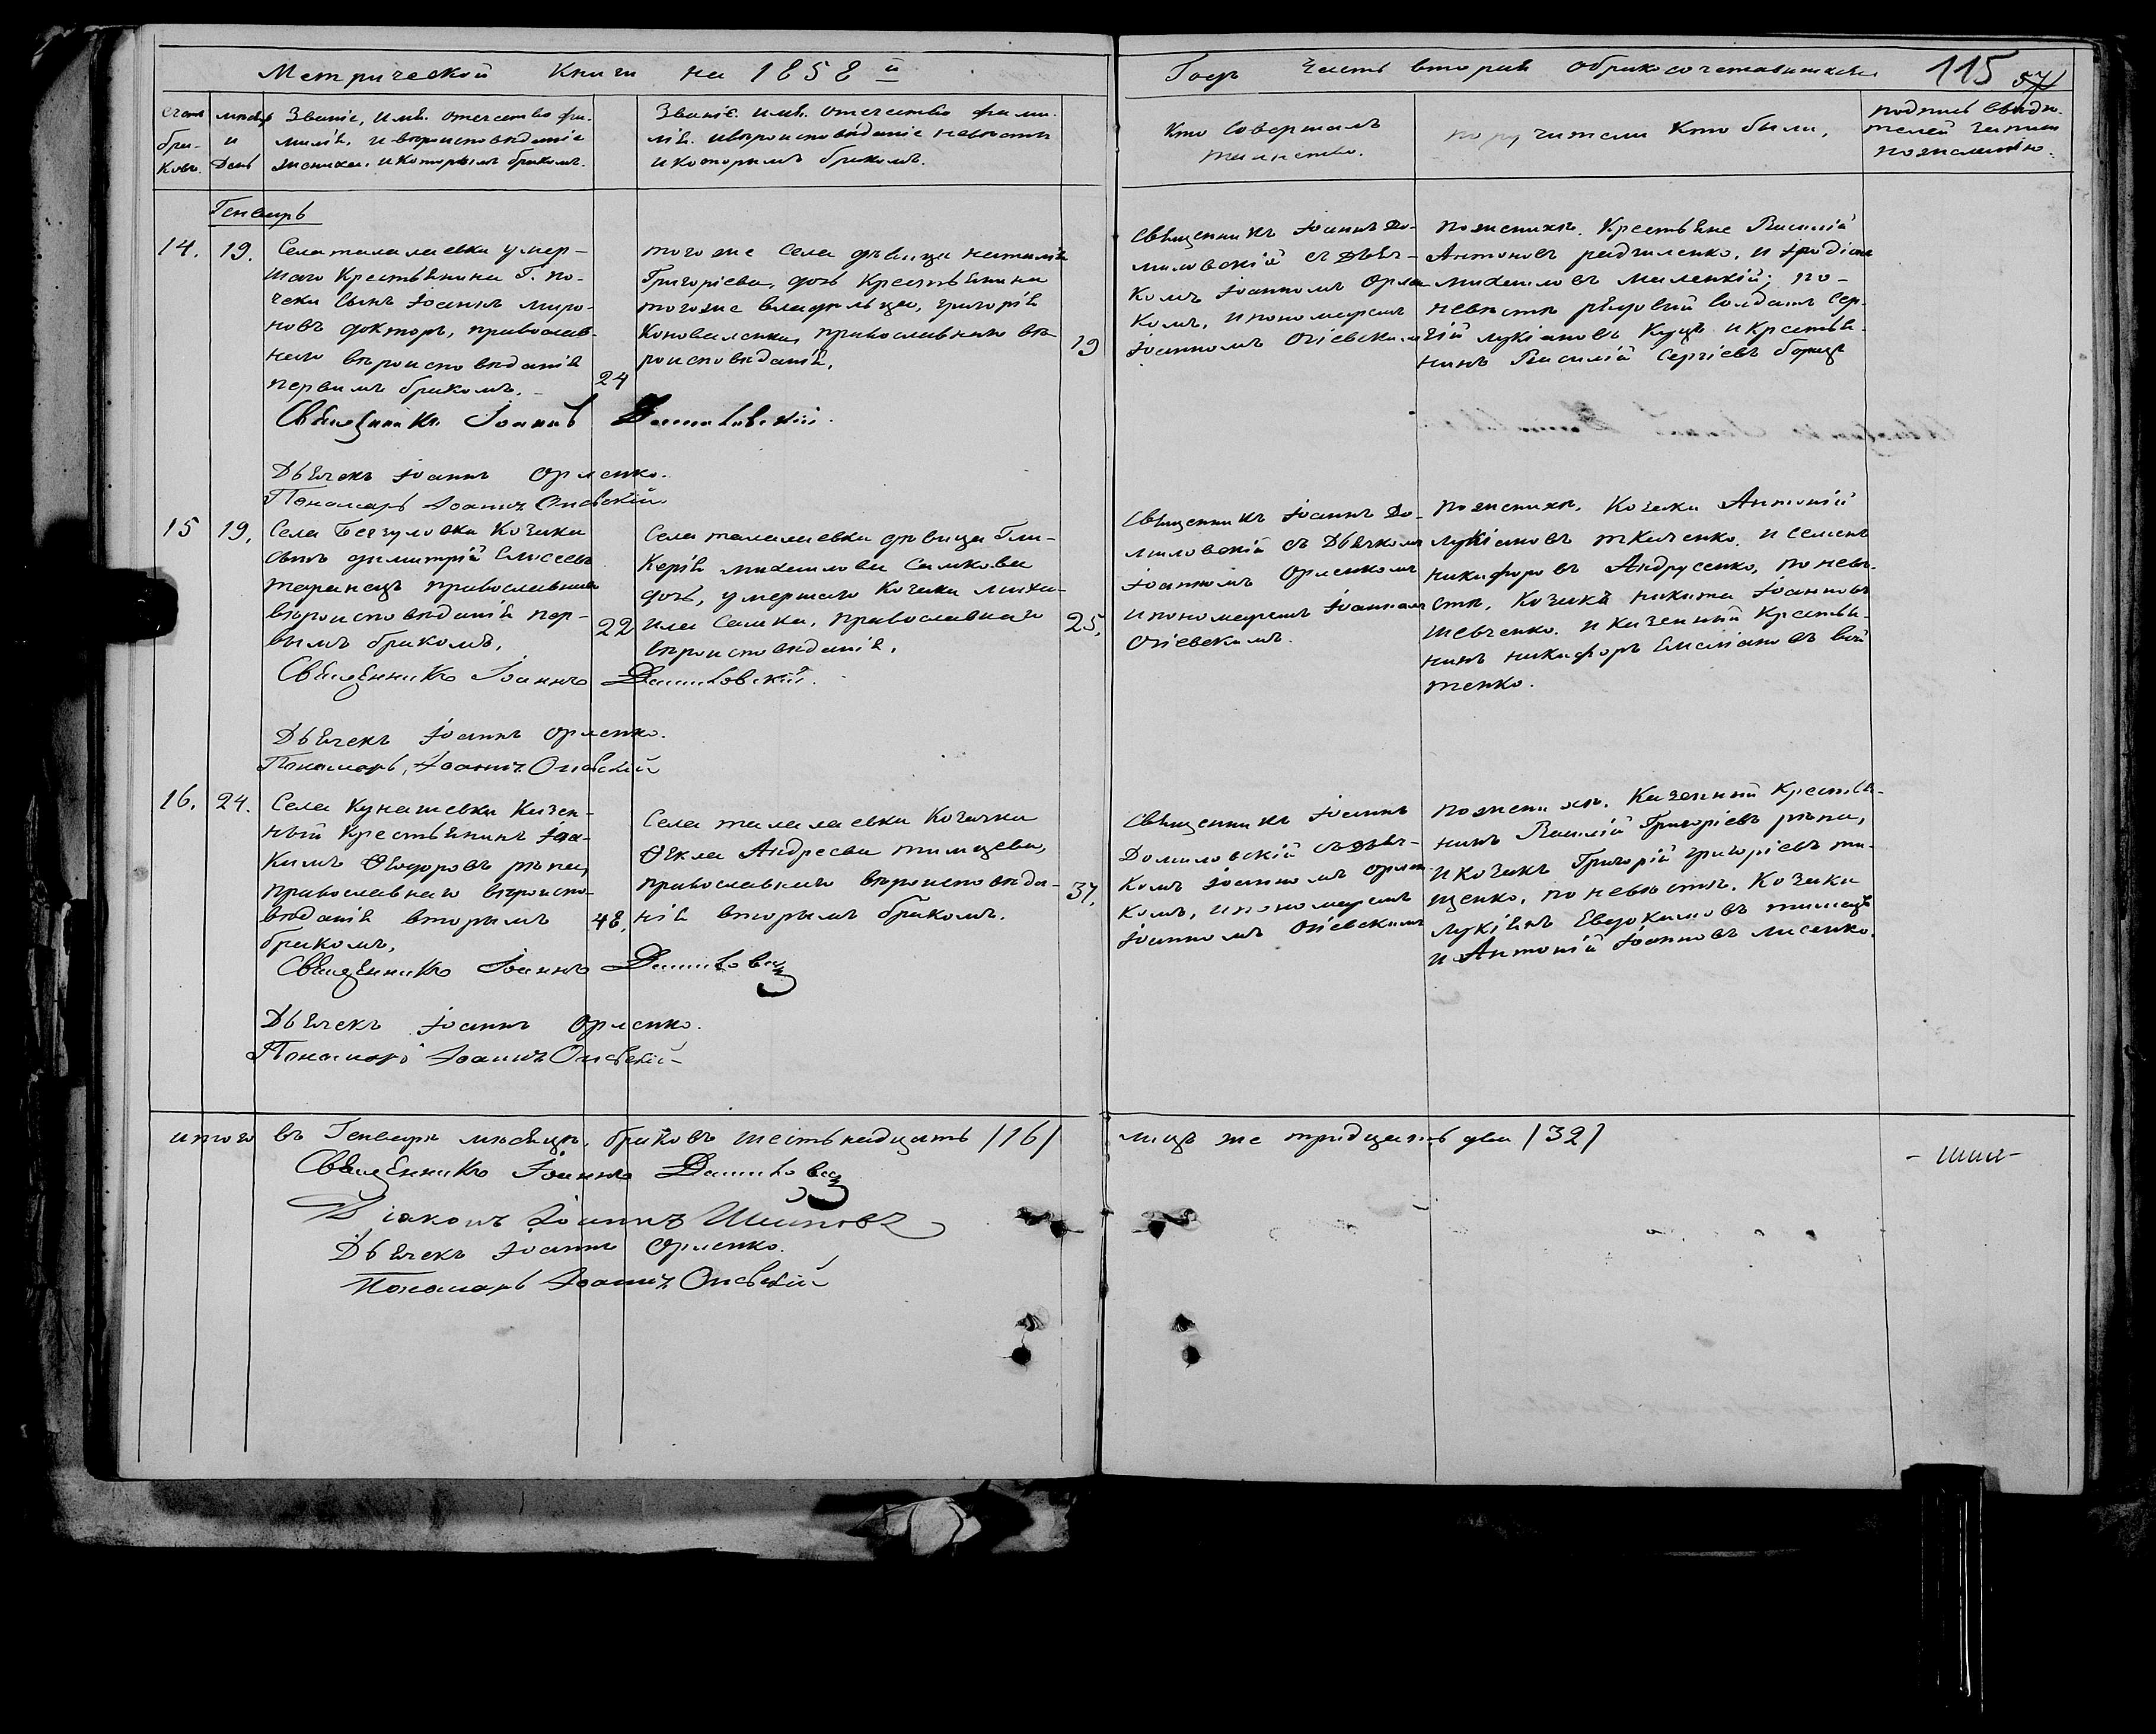 Метрической Книги на 1858й
Годъ Часть вторая о бракосочетавшихся 115
57
счетъ
бра-
ковъ.
мѣсяцъ
и
День
Званіе, имя, отечество фа-
милія, и вѣроисповѣданіе
жениха, и которымъ бракомъ.
Званіе, имя, отечество фами-
лія, и вѣроисповѣданіе невѣсты
и которымъ бракомъ.
Кто Совершалъ
таинство.
поручители кто были,
подпись свидѣ-
телей записи
по желанію.
Генварь
14. 19.
Села талалаевки умер-
шаго Крестьянина Г. по-
чеки сынъ Іоаннъ миро-
новъ докторъ, православ-
наго вѣроисповѣданія
первымъ бракомъ.
24
того же Села дѣвица наталія
Григоріева, дочь Крестьянина
того же владѣльца, григорія
Коноваленка, православнаго вѣ-
роисповѣданія,
19
Священникъ Іоаннъ До-
миловскій съ Дьяч-
комъ Іоанномъ Орлен-
комъ, и пономаремъ
Іоанномъ Огіевскимъ
по женихѣ, Крестьяне Василій
Антоновъ радченко, и Іродіонъ
михаиловъ маленкій; по-
невѣстѣ рядовый Солдатъ Сер-
гій лукіановъ Куцъ и Крестья-
нинъ Василій Сергіевъ борщъ
Священникъ Іоаннъ Домиловскій.
Дьячекъ Іоаннъ Орленко.
Пономарь Іоаннъ Огіевскій
15 19,
Села Безугловки Козака
сынъ димитрій Елисеевъ
таранецъ православнаго
вѣроисповѣданія пер-
вымъ бракомъ,
22
Села талалаевки дѣвица Гли-
керія михаилова Самкова
дочь, умершаго Козака миха-
ила Самка, православнаго
вѣроисповѣданія,
25,
Священникъ Іоаннъ До-
миловскій съ Дьячкомъ
Іоанномъ Орленкомъ
и пономаремъ Іоанномъ
Огіевскимъ.
по женихѣ, Козаки Антоній
лукіановъ ткаченко, и семенъ
никифоровъ Андрусенко, по невѣ-
стѣ, Козакъ никита Іоанновъ
шевченко, и казенный Крестья-
нинъ никифоръ Емеліановъ вой
тенко.
Священникъ Іоаннъ Домиловскій.
Дьячекъ Іоаннъ Орленко.
Пономарь, Іоаннъ Огіевскій
16. 24.
Села Кунашевки Казен-
ный Крестьянинъ Іоа-
кимъ Ѳеодоровъ рѣпа,
православнаго вѣроиспо-
вѣданія вторымъ
бракомъ,
48,
Села талалаевки Козачка
Ѳекла Андреева тимцева,
православнаго вѣроисповѣда-
нія вторымъ бракомъ.
37,
Священникъ Іоаннъ
Домиловскій съ дьяч-
комъ Іоанномъ орлен
комъ, и пономаремъ
Іоанномъ Огіевскимъ
по женихѣ, Казенный Крестья-
нинъ Василій Григоріевъ рѣпа,
и козакъ Григорій григоріевъ ти-
щенко, по невѣстѣ, Козаки
лукіянъ Евдокимовъ тимецъ
и Антоній Іоанновъ лисенко.
Священникъ Іоаннъ Домиловскій
Дьячекъ Іоаннъ Орленко.
Пономарь Іоаннъ Огіевскій
итого въ Генварѣ мѣсяцѣ, браковъ шестьнадцать /16/ лицъ же тридцать два /32/
Священникъ Іоаннъ Домиловскій
Діаконъ Іоаннъ
Дьячекъ Іоаннъ Орленко.
Пономарь Іоаннъ Огіевскій